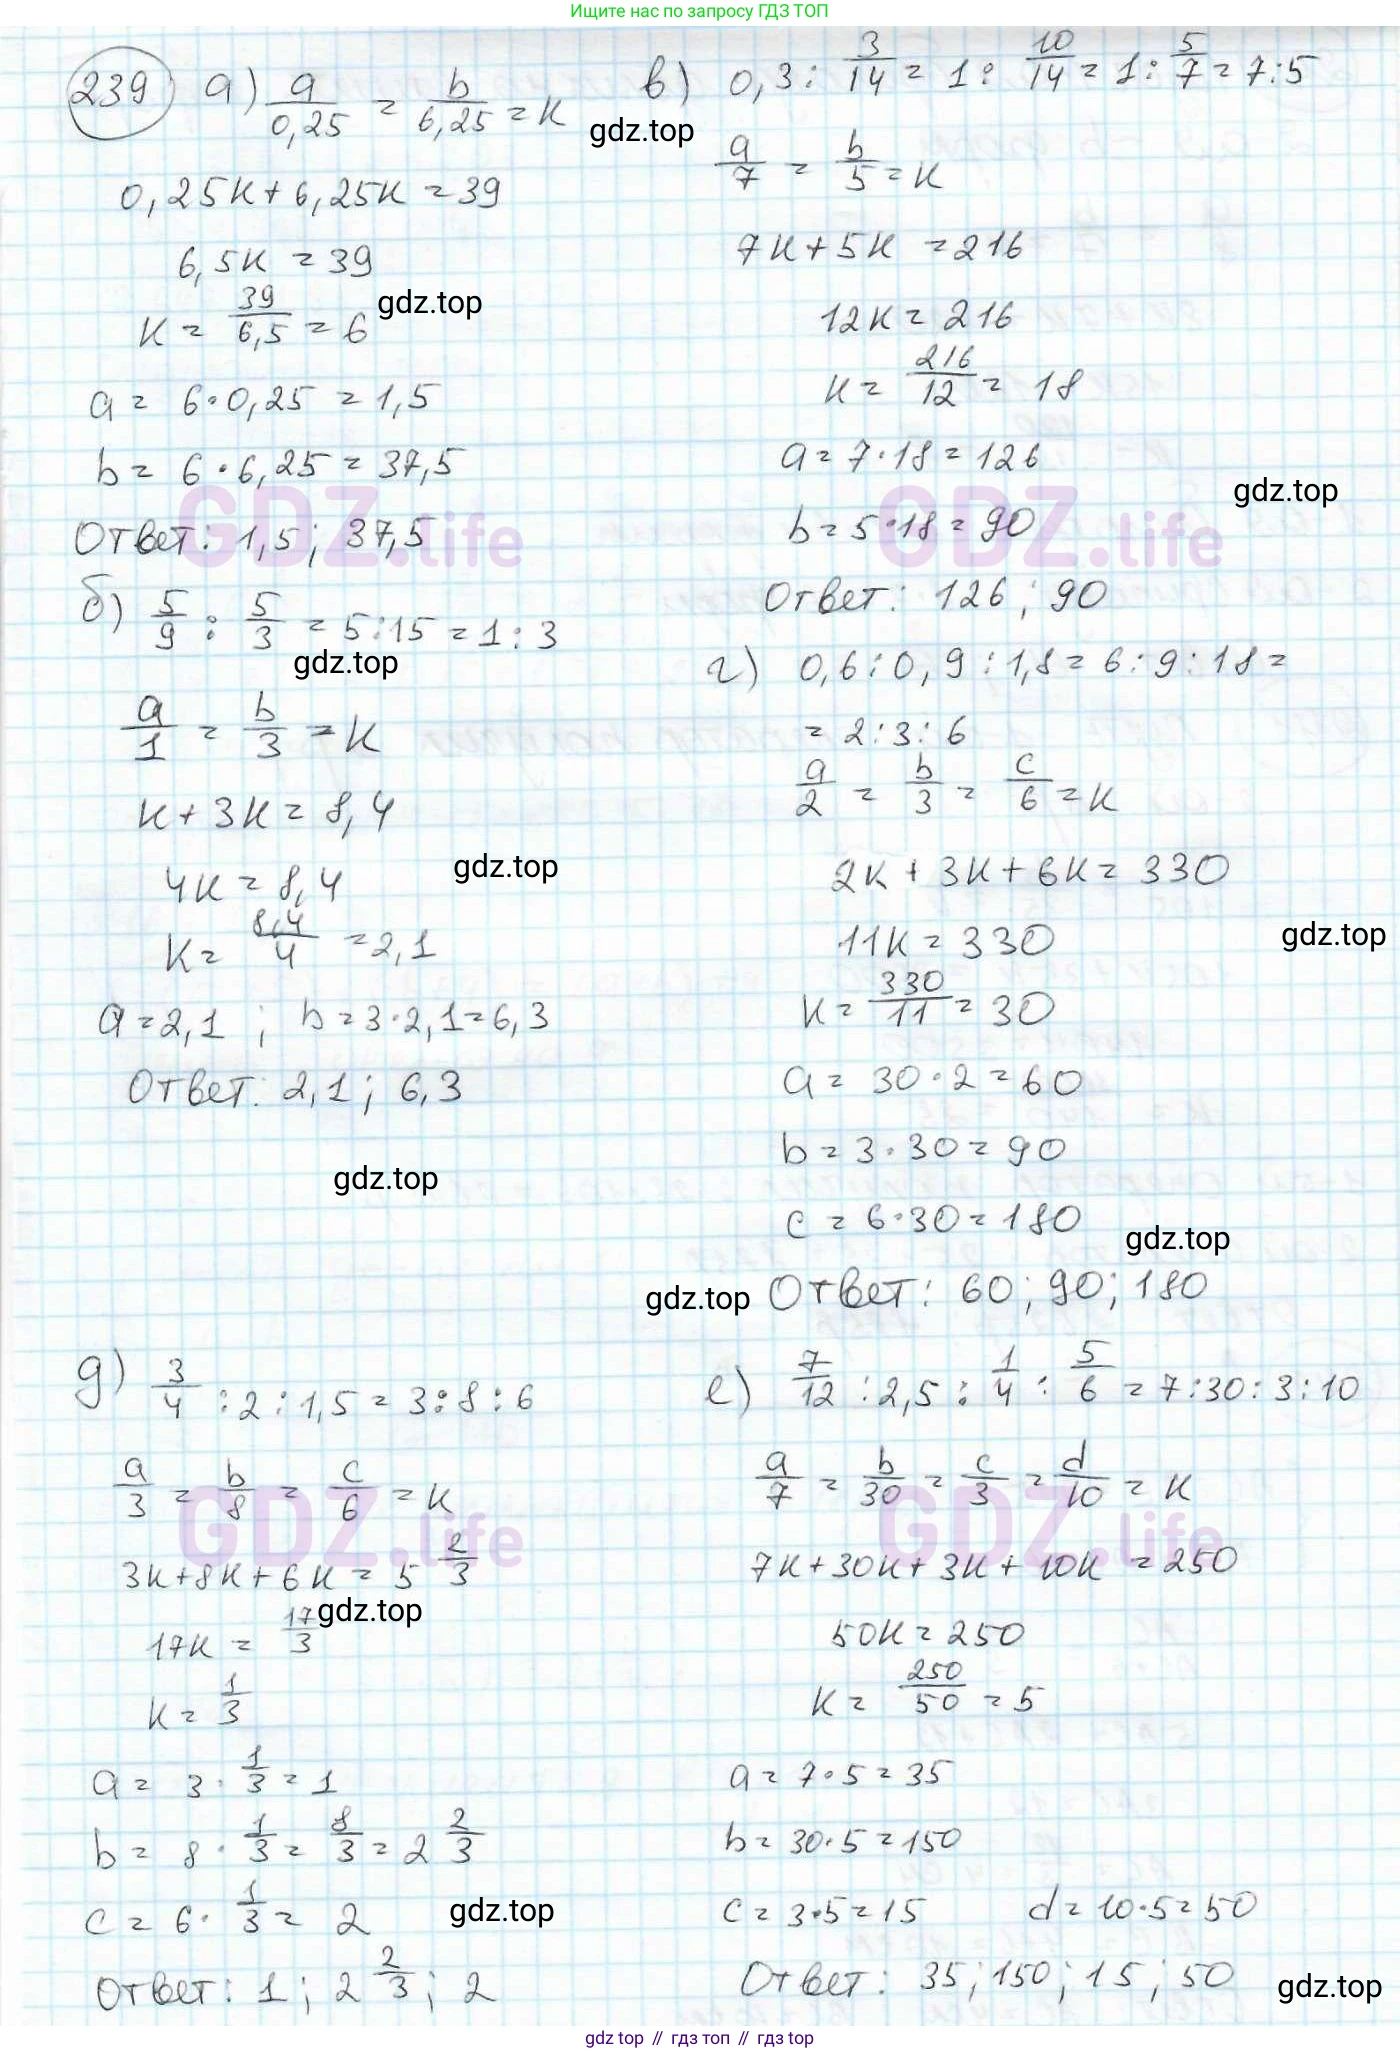 Ищите нас по запросу ГДЗ ТОП
239 а) a/0,25 = b/6,25 = k
gdz.top
0,25k + 6,25k = 39
6,5k = 39
k = 39/6,5 = 6
gdz.top
a = 6·0,25 = 1,5
b = 6·6,25 = 37,5
GDZ.life
Ответ: 1,5; 37,5
б) 5/9 : 5/3 = 5:15 = 1:3
gdz.top
a/1 = b/3 = k
k + 3k = 8,4
4k = 8,4
gdz.top
k = 8,4/4 = 2,1
a = 2,1 ; b = 3·2,1 = 6,3
Ответ: 2,1; 6,3
gdz.top
в) 0,3 : 3/14 = 1 : 10/14 = 1 : 5/7 = 7:5
a/7 = b/5 = k
7k + 5k = 216
12k = 216
k = 216/12 = 18
a = 7·18 = 126
gdz.top
b = 5·18 = 90
GDZ.life
Ответ: 126; 90
г) 0,6 : 0,9 : 1,8 = 6:9:18 =
= 2:3:6
a/2 = b/3 = c/6 = k
2k + 3k + 6k = 330
11k = 330
gdz.top
k = 330/11 = 30
a = 30·2 = 60
b = 3·30 = 90
c = 6·30 = 180
gdz.top
gdz.top
Ответ: 60; 90; 180
д) 3/4 : 2 : 1,5 = 3:8:6
a/3 = b/8 = c/6 = k
GDZ.life
3k + 8k + 6k = 5 2/3
17k = 17/3
gdz.top
k = 1/3
a = 3 · 1/3 = 1
b = 8 · 1/3 = 8/3 = 2 2/3
c = 6 · 1/3 = 2
gdz.top
Ответ: 1; 2 2/3; 2
е) 7/12 : 2,5 : 1/4 : 5/6 = 7:30:3:10
a/7 = b/30 = c/3 = d/10 = k
GDZ.life
7k + 30k + 3k + 10k = 250
50k = 250
k = 250/50 = 5
a = 7·5 = 35
b = 30·5 = 150
c = 3·5 = 15 d = 10·5 = 50
Ответ: 35; 150; 15; 50
gdz.top
gdz top // гдз топ // гдз top